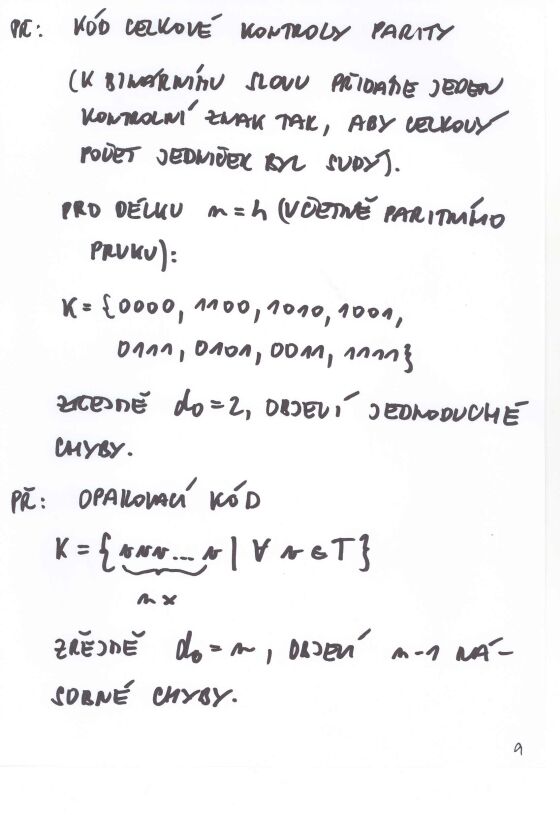 PŘ: KÓD CELKOVÉ KONTROLY PARITY
(K BINÁRNÍMU SLOVU PŘIDÁME JEDEN
KONTROLNÍ ZNAK TAK, ABY CELKOVÝ
POČET JEDNIČEK BYL SUDÝ).
PRO DÉLKU n=4 (VČETNĚ PARITNÍHO
PRVKU):
K={0000, 1100, 1010, 1001,
0111, 0101, 0011, 1111}
ZŘEJMĚ d₀=2, OBJEVÍ JEDNODUCHÉ
CHYBY.
PŘ: OPAKOVACÍ KÓD
K={sss...s | ∀ s∈T}
n×
ZŘEJMĚ d₀=n, OBJEVÍ n-1 NÁ-
SOBNÉ CHYBY.
9